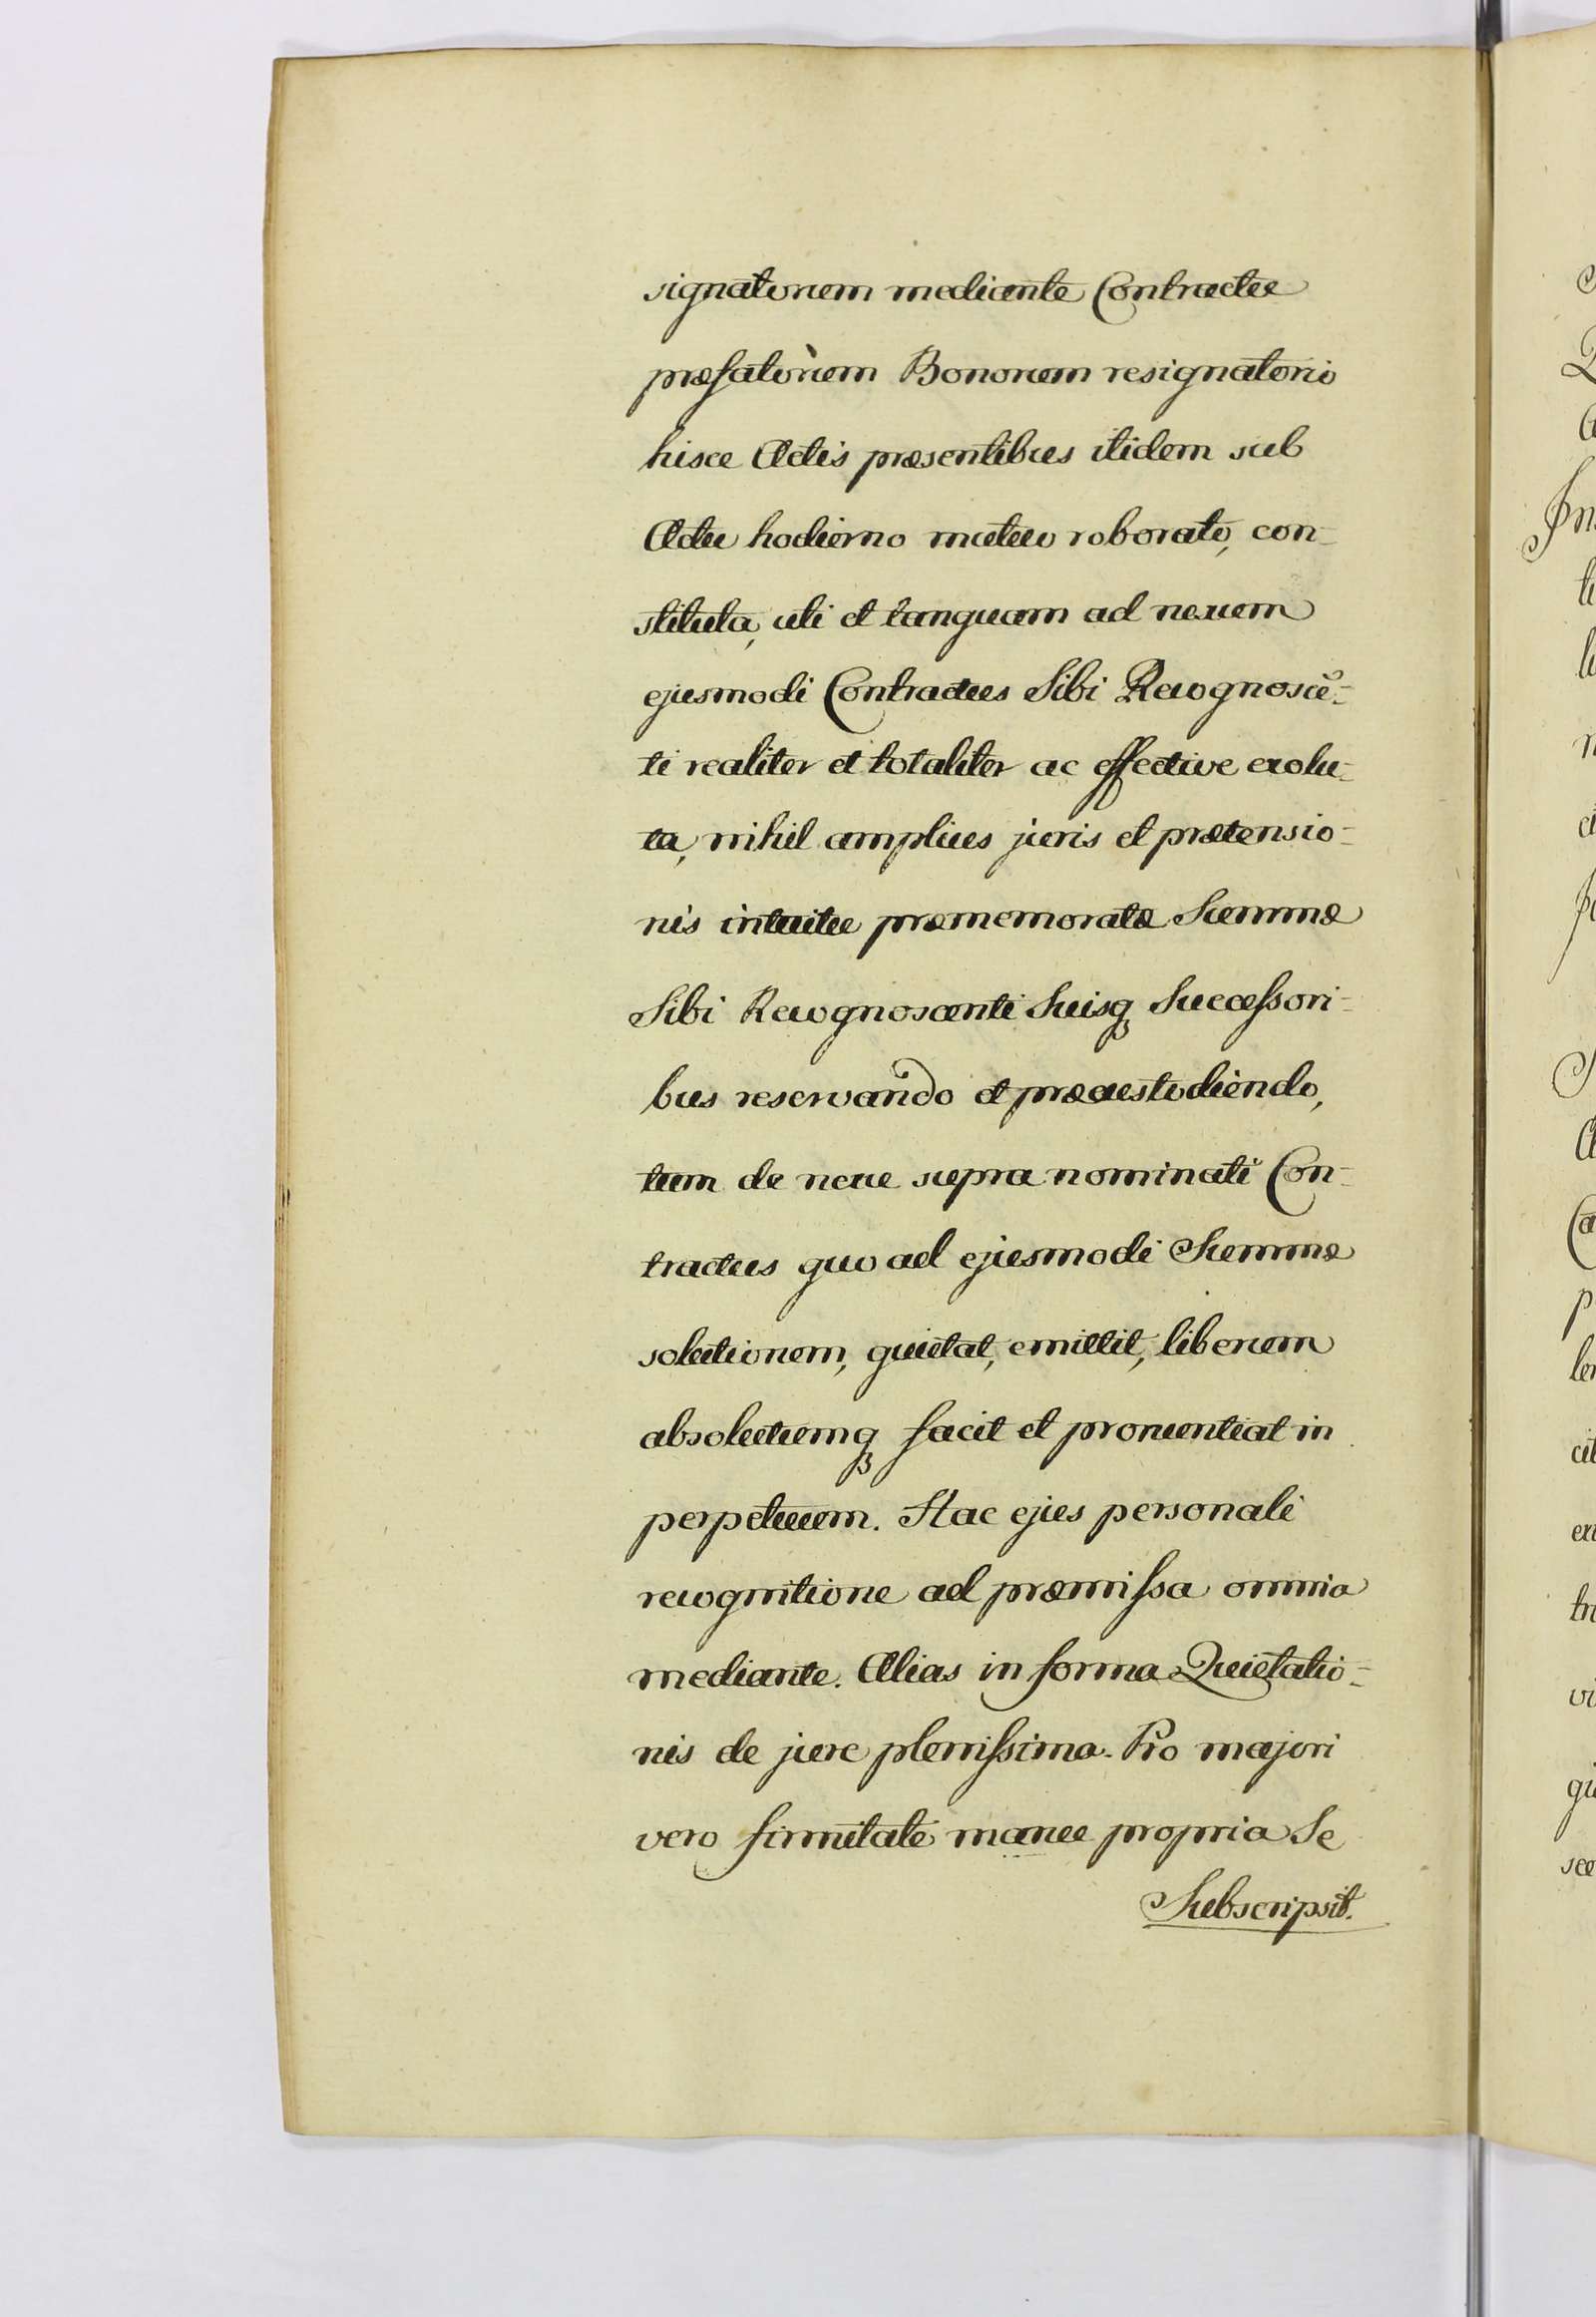 signatorum mediante Contractu
præfatorum Bonorum resignatorio
hisce Actis præsentibus itidem sub
Actu hodierno mutuo roborato, con-
stituta, uti et tanquam ad nexum
ejusmodi Contractus Sibi Recognoscē-
ti realiter et totaliter ac effective exolu-
ta, nihil amplius juris et prætensio-
nis intuitu præmemoratæ Summæ
Sibi Recognoscenti Suisq Successori-
bus reservando et præcustodiendo,
tum de nexu supra nominati Con-
tractus quo ad ejusmodi Summæ
solutionem, quietat, emittit, liberum
absolutumq facit et pronuntiat in
perpetuum. Hac ejus personali
recognitione ad præmissa omnia
mediante. Alias in forma Quietatio-
nis de jure plenissima. Pro majori
vero firmitate manu propria Se
Subscripsit.